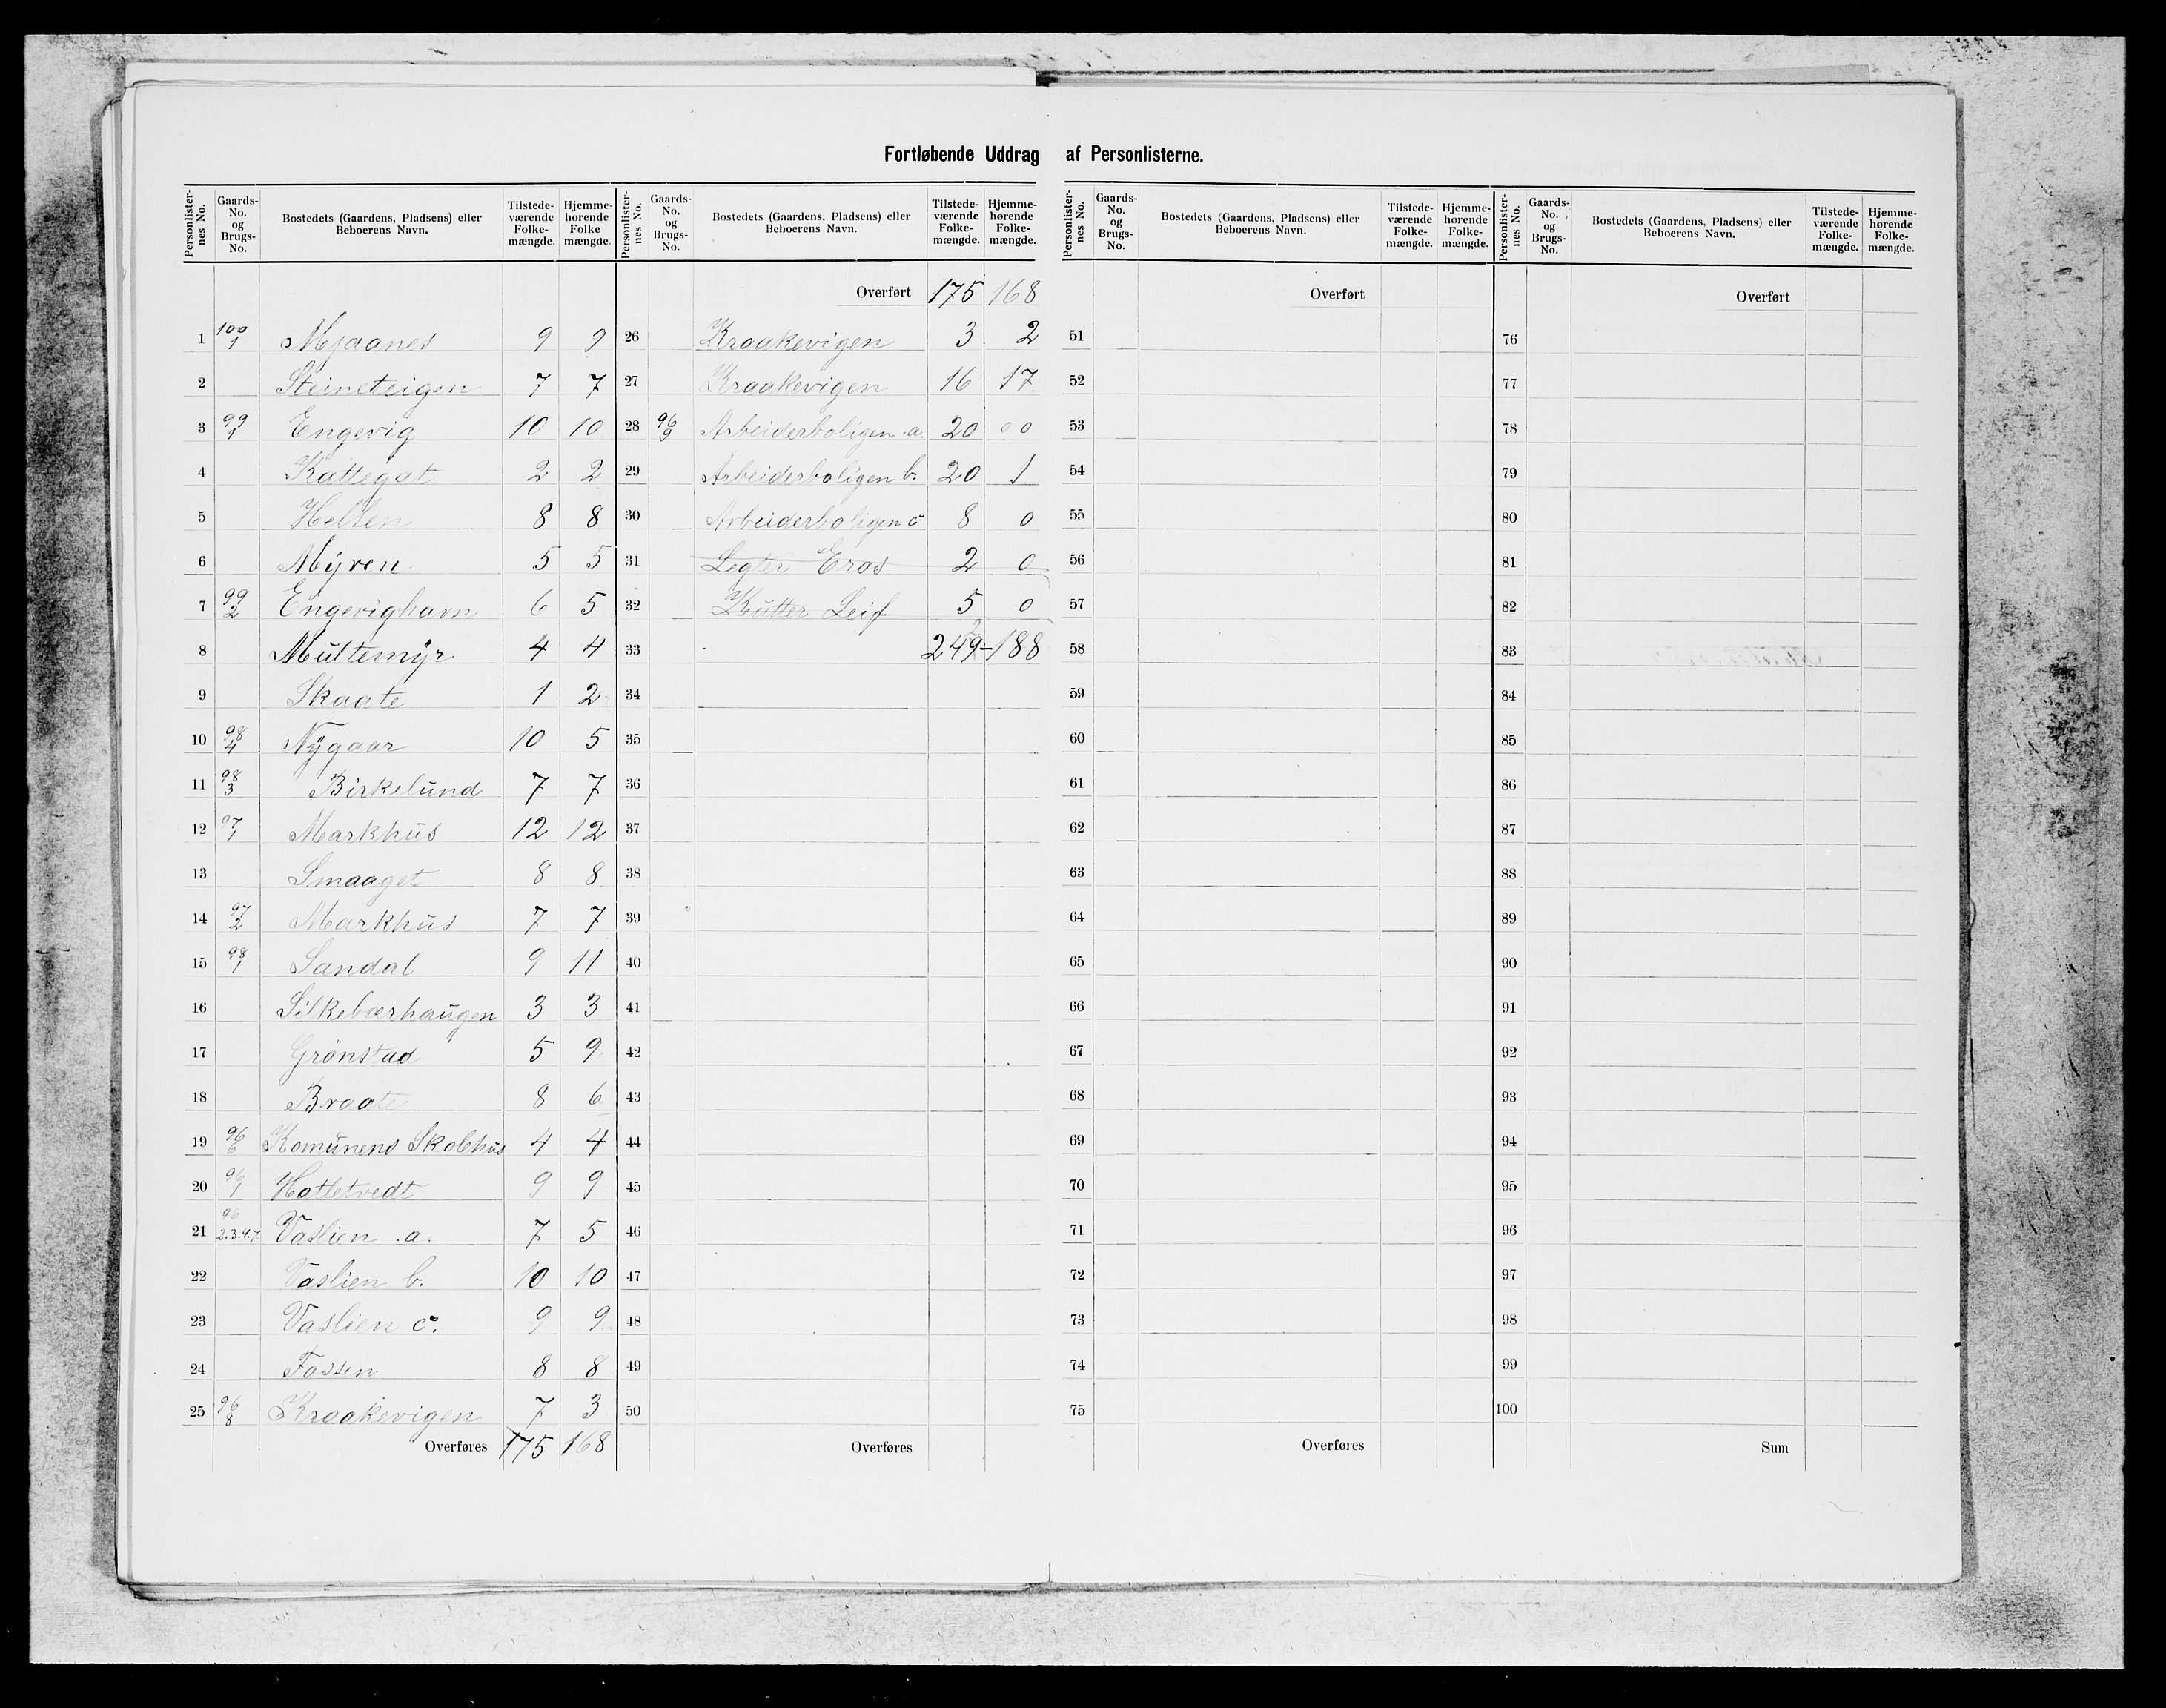 Fortløbende Uddrag af Personlisterne.
Personlister-nes No. | Gaards-No. og Brugs-No. | Bostedets (Gaardens, Pladsens) eller Beboerens Navn. | Tilstede-værende Folke-mængde. | Hjemme-hørende Folke mængde.
1 100/1 Mjaanes 9 9
2 Steineteigen 7 7
3 99/1 Engevig 10 10
4 Kattegat 2 2
5 Hellen 8 8
6 Myren 5 5
7 99/2 Engevighavn 6 5
8 Multemyr 4 4
9 Skaate 1 2
10 98/4 Nygaar 10 5
11 98/3 Birkelund 7 7
12 97/1 Markhus 12 12
13 Smaaget 8 8
14 97/2 Markhus 7 7
15 98/1 Sandal 9 11
16 Silkebærhaugen 3 3
17 Grönstad 5 9
18 Braate 8 6
19 96/6 Komunens Skolehus 4 4
20 96/1 Hatletvedt 9 9
21 96/2.3.4.7 Vaslien a. 7 5
22 Vaslien b. 10 10
23 Vaslien c. 9 9
24 Fossen 8 8
25 96/8 Kraakevigen 7 3
Overføres 175 168
Personlister-nes No. | Gaards-No. og Brugs-No. | Bostedets (Gaardens, Pladsens) eller Beboerens Navn. | Tilstede-værende Folke-mængde. | Hjemme-hørende Folke-mængde.
Overført 175 168
26 Kraakevigen 3 2
27 Kraakevigen 16 17
28 96/9 Arbeiderboligen a. 20 0 0
29 Arbeiderboligen b. 20 1
30 Arbeiderboligen c 8 0
31 Legter Eros 2 0
32 Kutter Leif 5 0
33 249-188
34
35
36
37
38
39
40
41
42
43
44
45
46
47
48
49
50
Overføres
Personlister-nes No. | Gaards-No. og Brugs-No. | Bostedets (Gaardens, Pladsens) eller Beboerens Navn. | Tilstede-værende Folke-mængde. | Hjemme-hørende Folke-mængde.
Overført
51
52
53
54
55
56
57
58
59
60
61
62
63
64
65
66
67
68
69
70
71
72
73
74
75
Overføres
Personlister-nes No. | Gaards-No. og Brugs-No. | Bostedets (Gaardens, Pladsens) eller Beboerens Navn. | Tilstede-værende Folke-mængde. | Hjemme-hørende Folke-mængde.
Overført
76
77
78
79
80
81
82
83
84
85
86
87
88
89
90
91
92
93
94
95
96
97
98
99
100
Sum